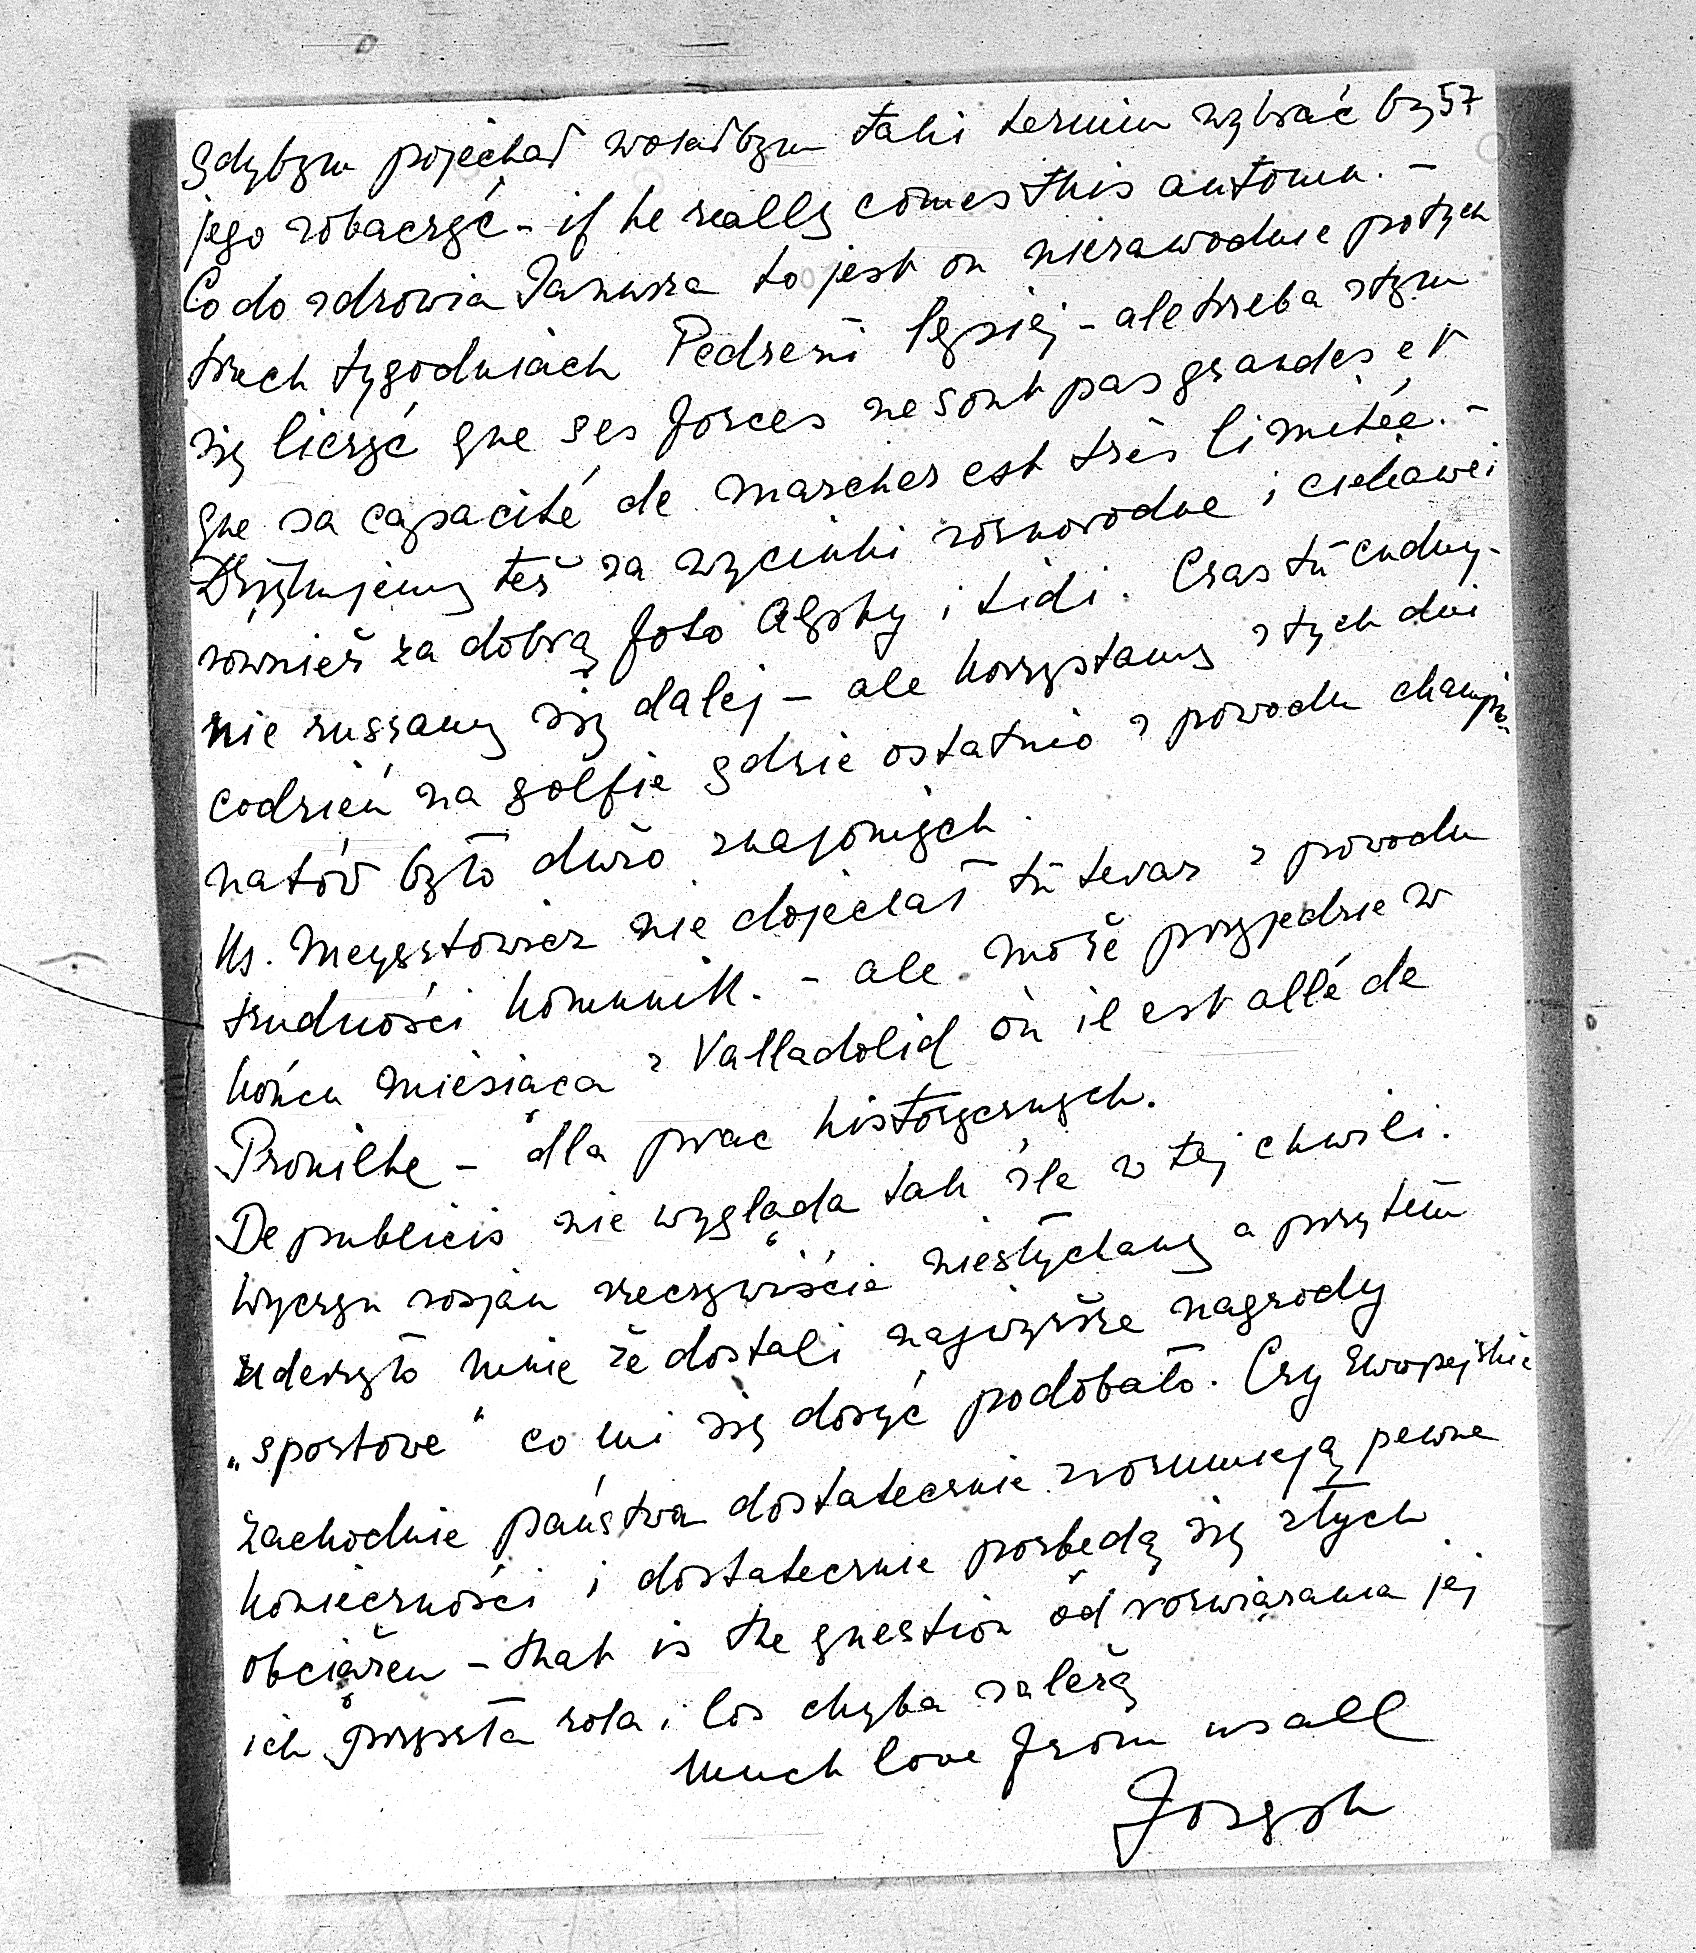 gdybym pojechał wolałbym taki termin wybrać by 57
jego zobaczyć - if he really comes this autumn. -
Co do zdrowia Janusza to jest on niezawodnie po tych
trzech tygodniach Pedreni lepiej - ale trzeba z tym
się liczyć que ses forces ne sont pas grandes et
que sa capacité de marcher est très limitée. -
Dziękujemy też za wycinki różnorodne i ciekawe i
również za dobrą foto Alphy i Lidi. Czas tu cudny -
nie ruszamy się dalej - ale korzystamy z tych dni
codzień na golfie gdzie ostatnio z powodu champio-
natów było dużo znajomych.
Ks. Meysztowicz nie dojechał tu teraz z powodu
trudności komunik. - ale może przyjedzie w
końcu miesiąca z Valladolid où il est allé de
- dla prac historycznych.
De publicis nie wygląda tak źle w tej chwili.
Wyczyn rosjan rzeczywiście niesłychany a przytem
uderzyło mnie że dostali najwyższe nagrody
„sportowe" co mi się dosyć podobało. Czy Europejskie
zachodnie państwa dostatecznie zrozumieją pewne
konieczności i dostatecznie pozbędą się złych
obciążeń - that is the question od rozwiązania jej
ich przyszła rola i los chyba zależą
Much love from us all
Joseph